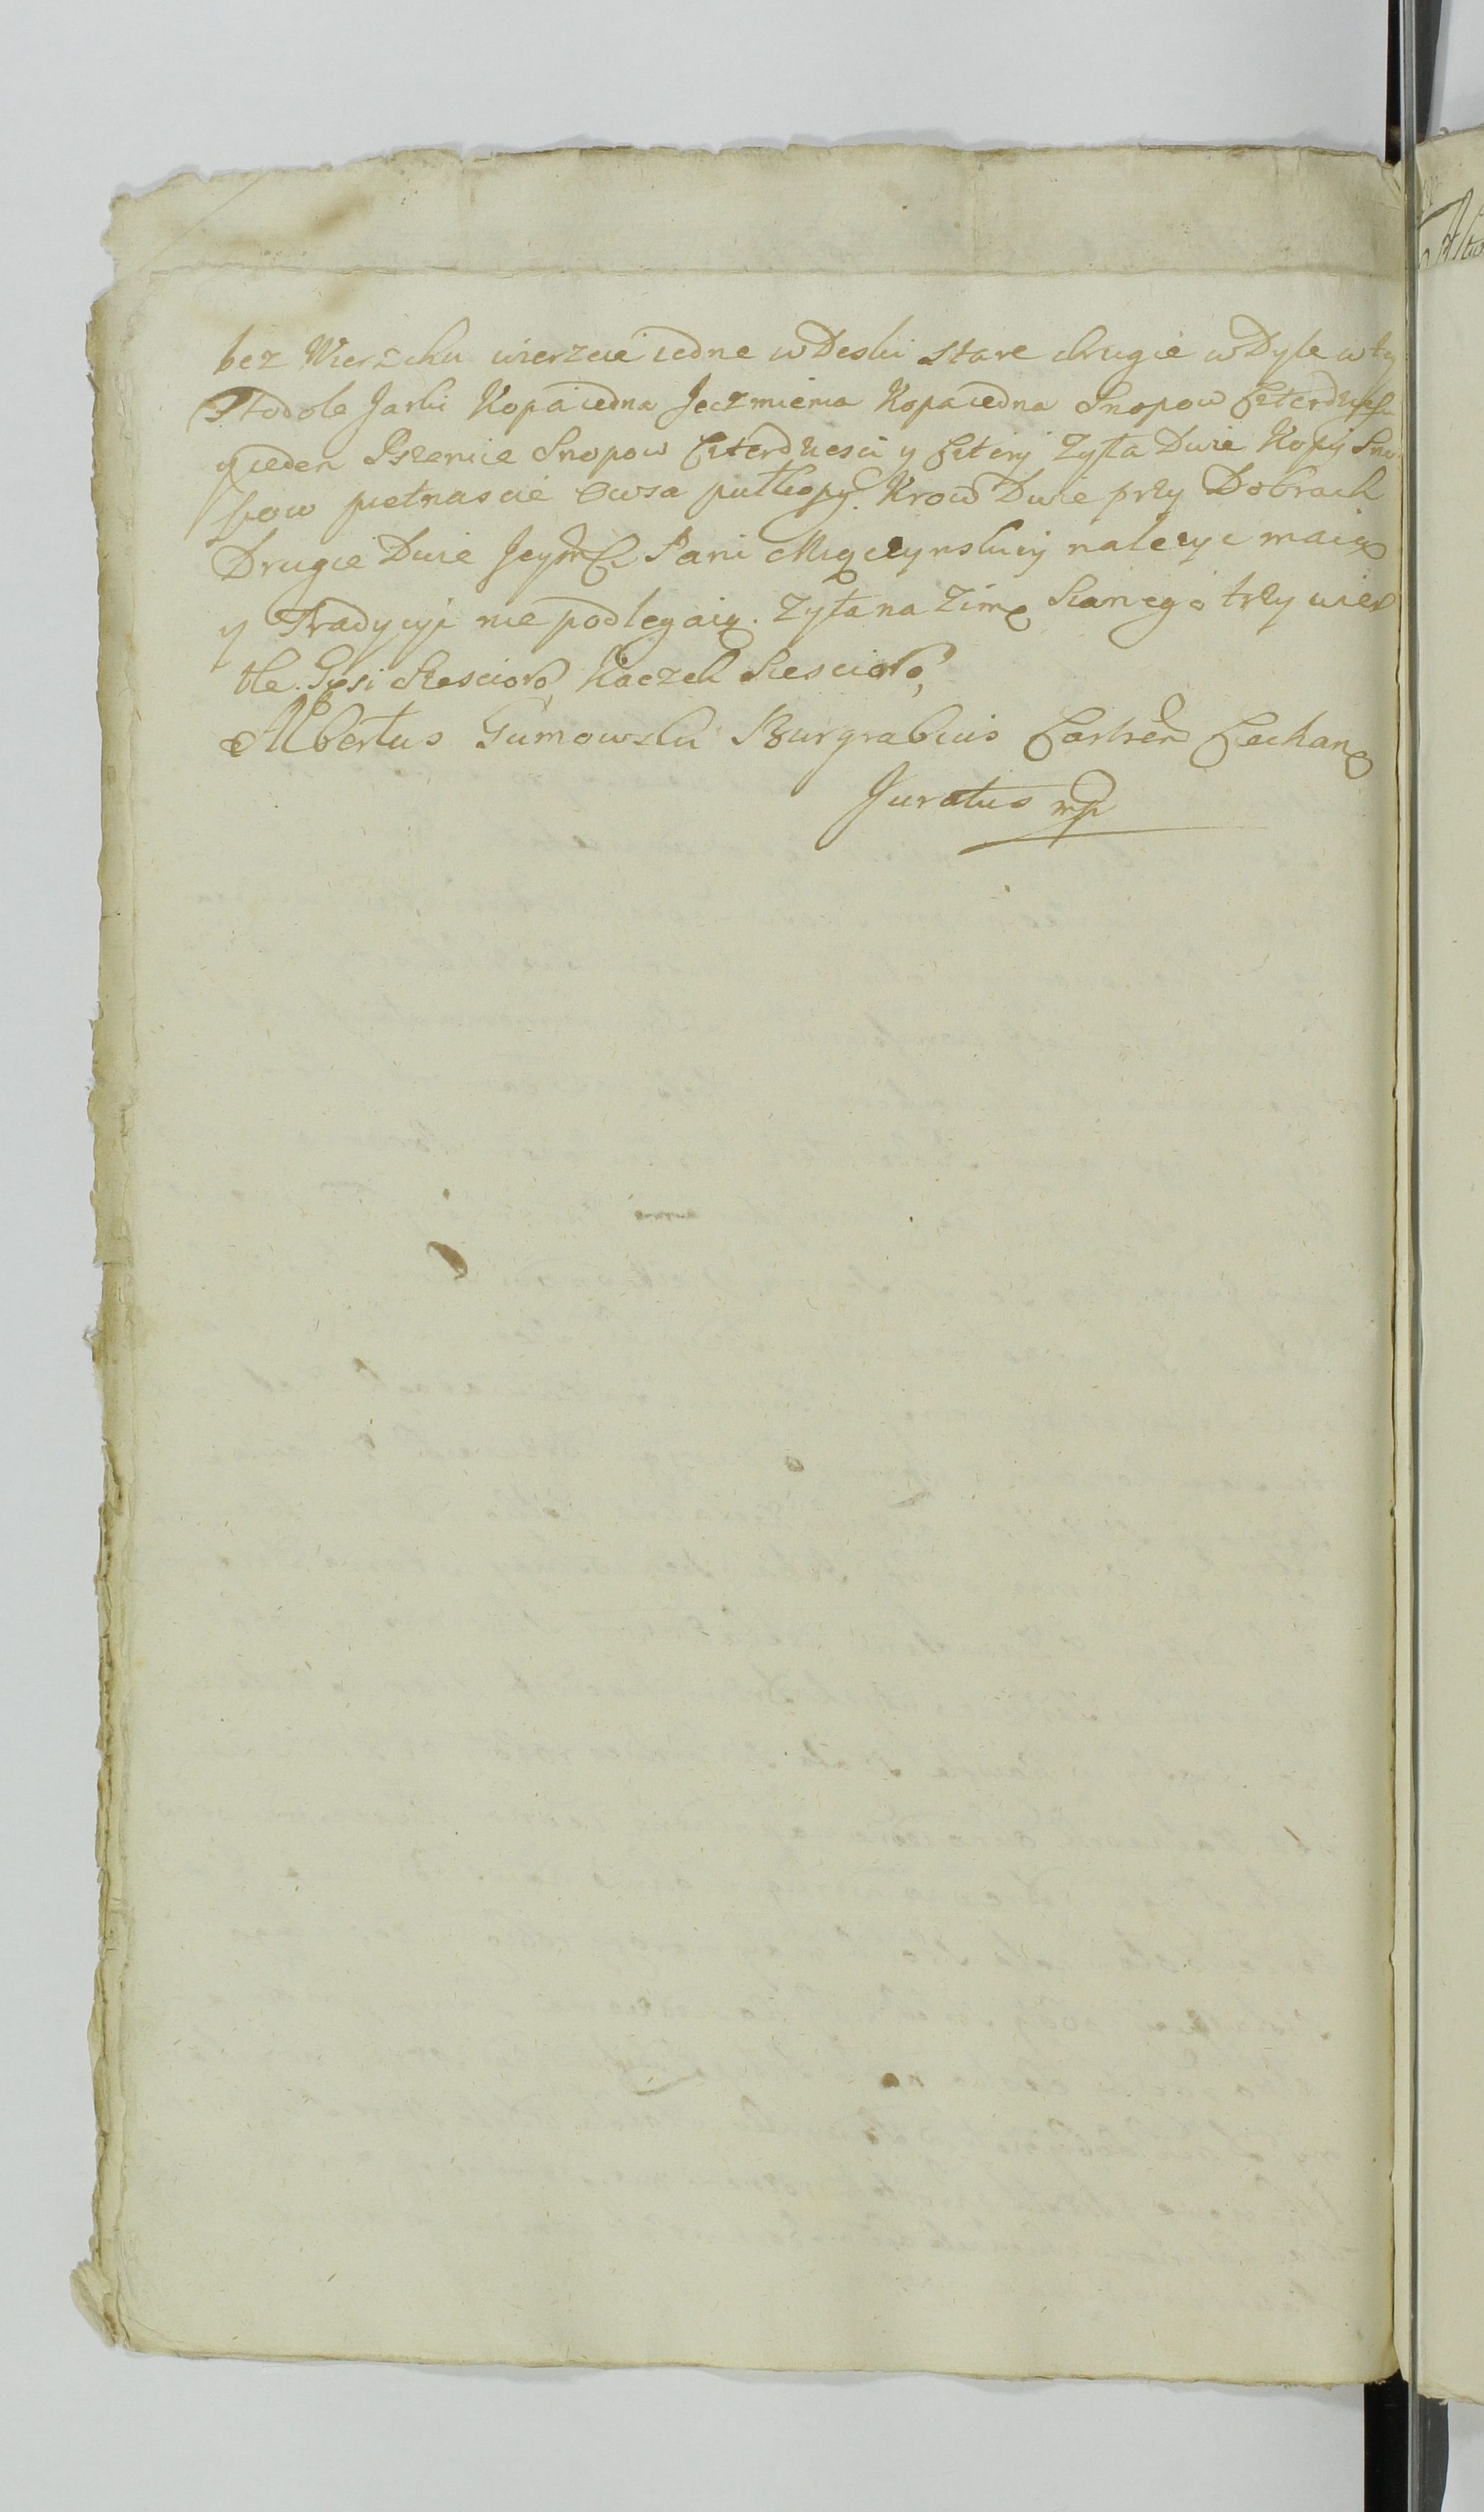 bez Wierzchu wierzeie iedne w Deski stare drugie w Dyle w ty
Stodole Jarki Kopa iedna Jęczmienia Kopa iedna Snopow Czterdziesci
y ieden Pszenice Snopow Czterdziesci y Cztery Zyta Dwie Kopy Sno
pow pietnascie Owsa pułkopy. Krow Dwie przy Dobrach
Drugie Dwie Jeymć Pani należyc maią
y Tradycyi nie podlegaią. Zyta na Zimę Sianego trzy wier
tle. Gęsi Szescioro, Kaczek Szescioro,
Albertus Gumowski Burgrabius Castren Ciechan
Juratus mp